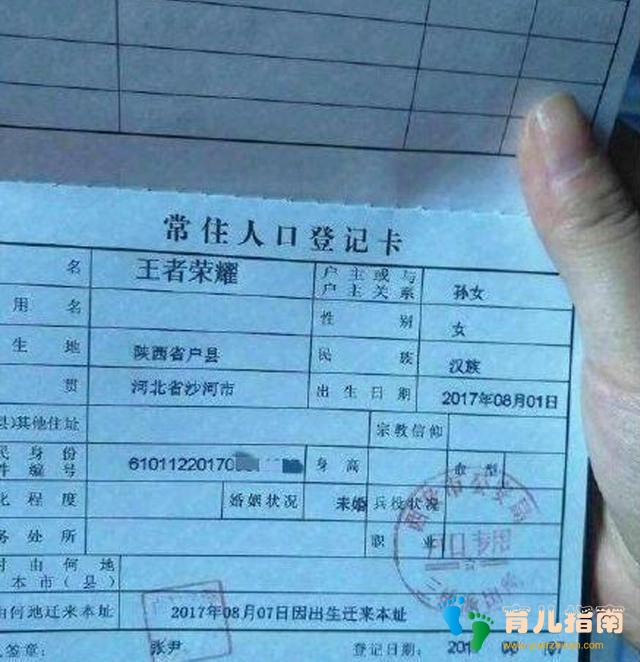 常住人口登记卡
名 王者荣耀 户主或与户主关系 孙女
用名 性别 女
生地 陕西省户县 民族 汉族
贯 河北省沙河市 出生日期 2017年08月01日
县)其他住址 宗教信仰
民身份
件编号 61011220170 身高 血型
化程度 婚姻状况 未婚 兵役状况
务处所 职业
时由何地
本市(县)
由何地迁来本址 2017年08月07日因出生迁来本址
人签章: 张尹 登记日期: 201
户口专用
育儿指南